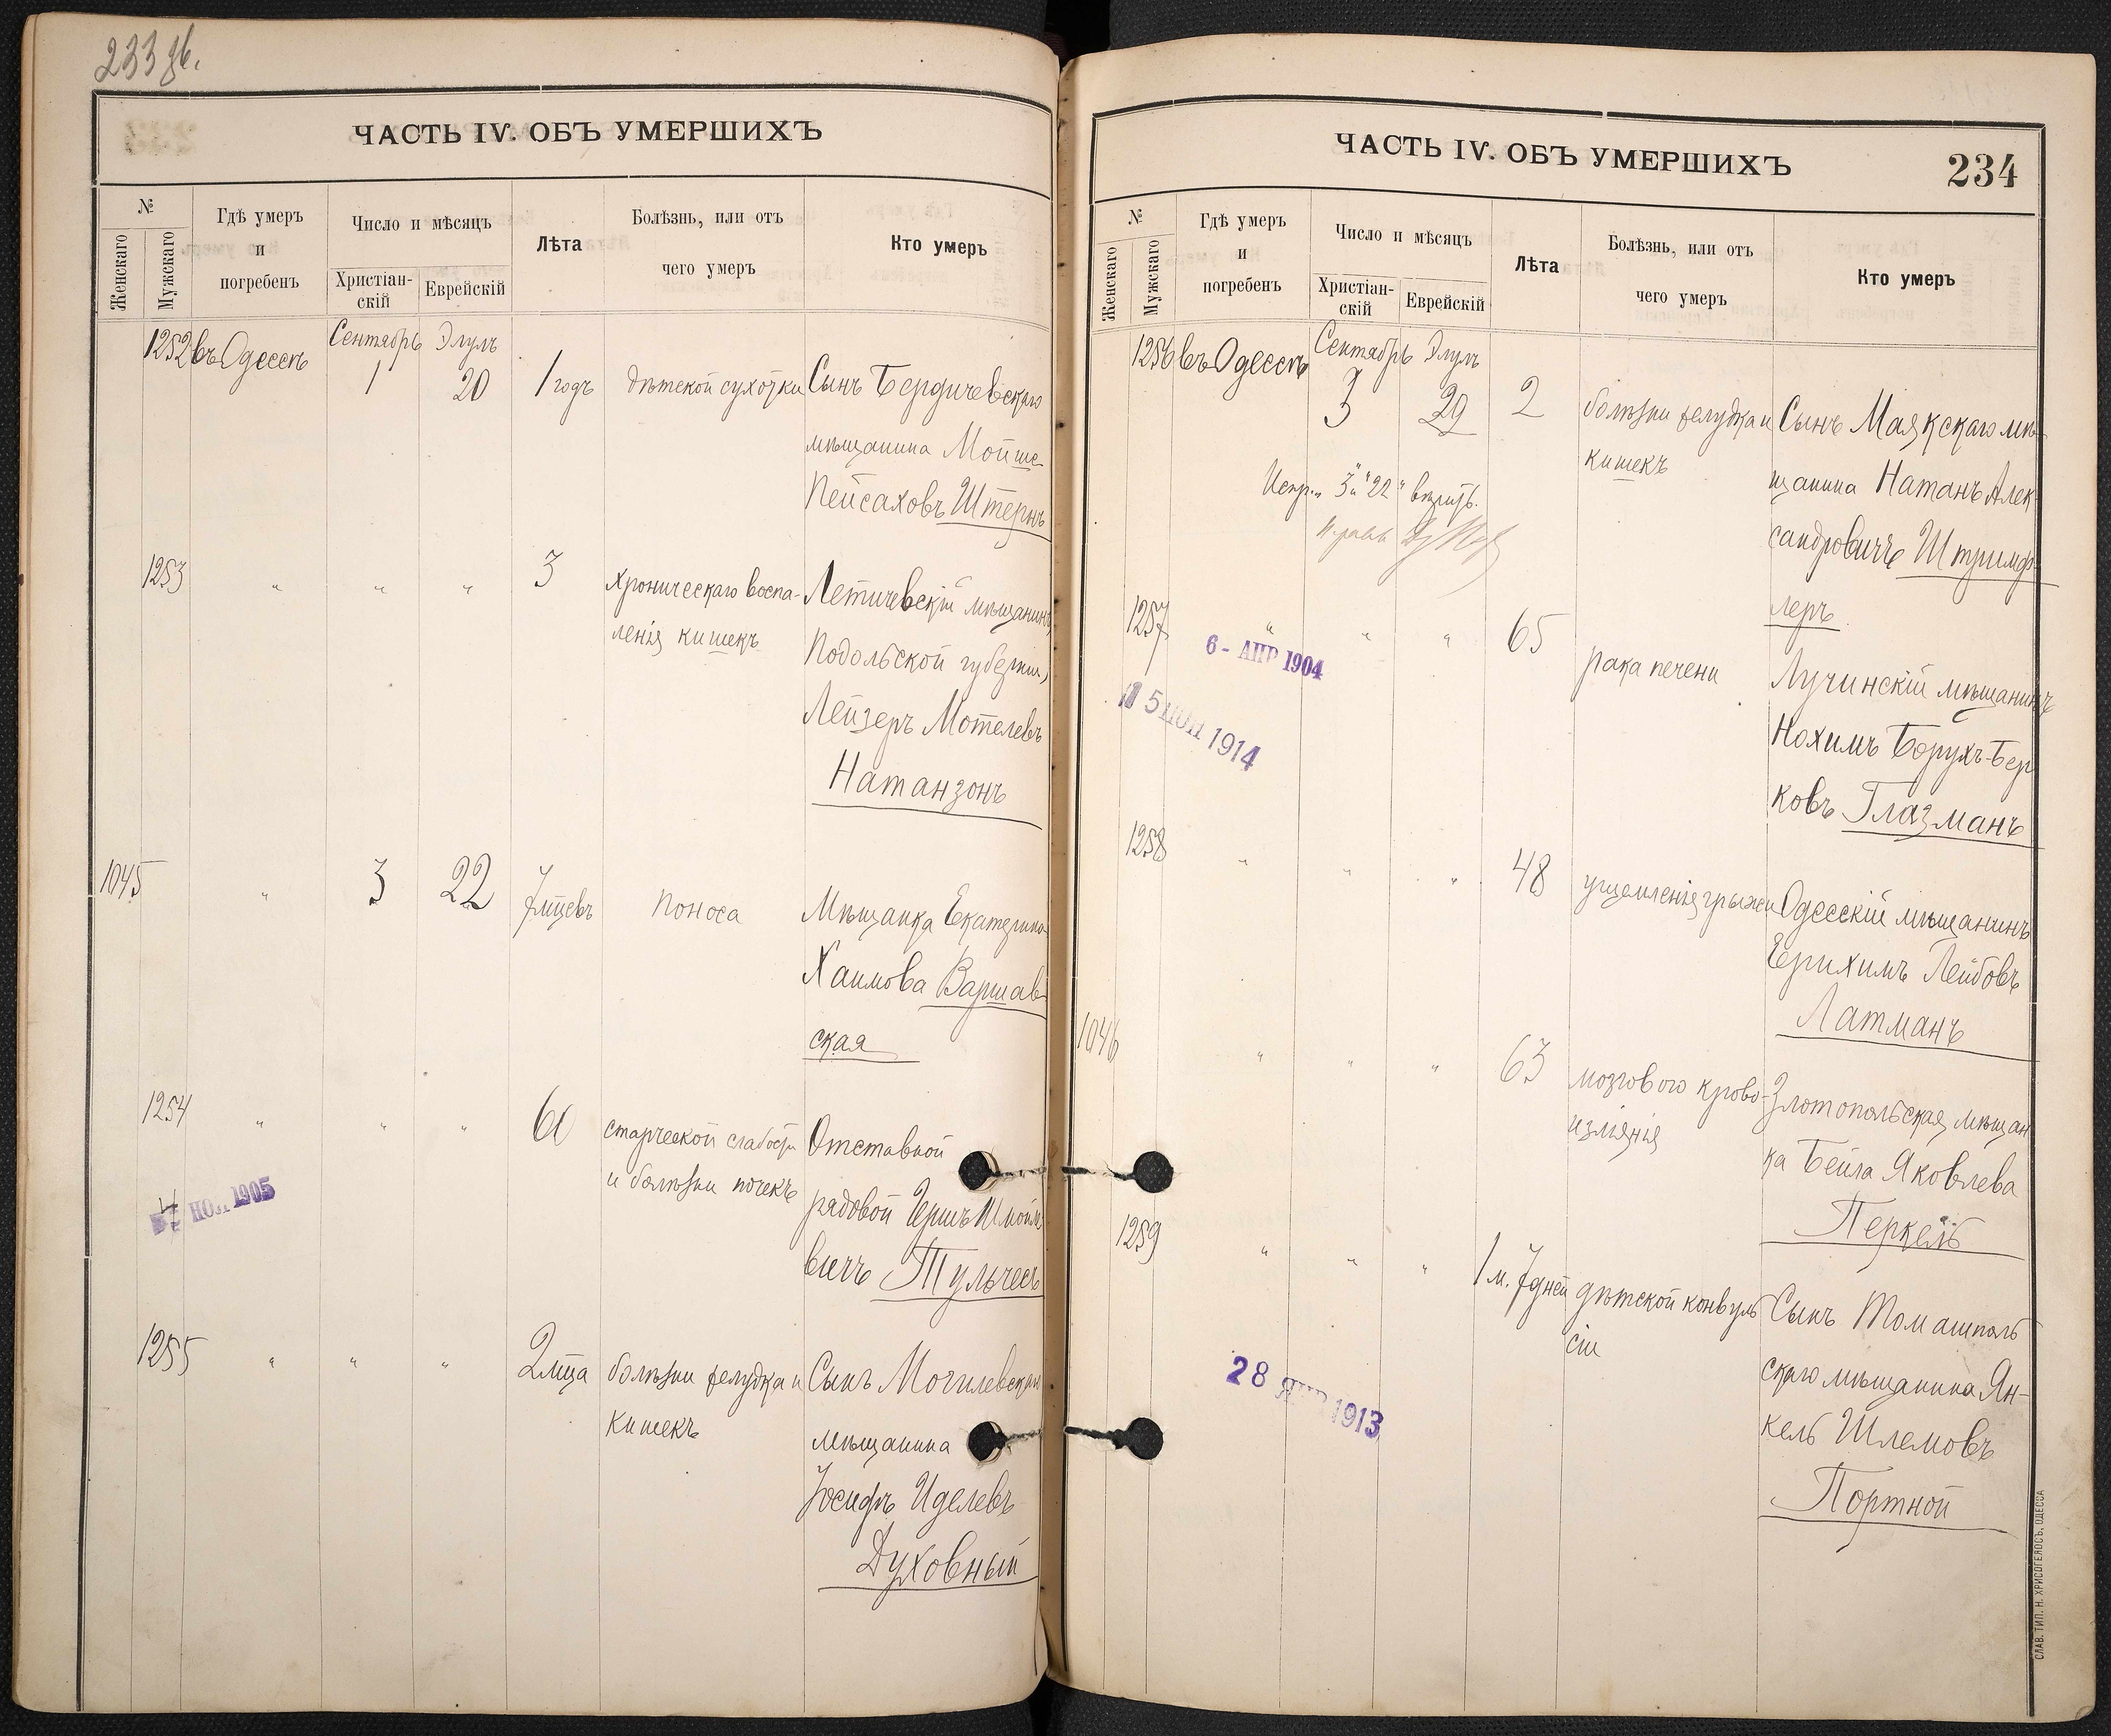 233 об.
ЧАСТЬ IV. ОБЪ УМЕРШИХЪ
№
Женскаго
Мужскаго
Гдѣ умеръ
и
погребенъ
Число и мѣсяцъ
Христіан-
скій
Еврейскій
Лѣта
Болѣзнь, или отъ
чего умеръ
Кто умеръ
1252 въ Одессѣ Сентябрь Элулъ
1 20 1 годъ дѣтской сухотки Сынъ Бердичевскаго
мѣщанина Мойше
Пейсаховъ Штернъ
1253 " " " 3 хроническаго воспа- Летичевскій мѣщанинъ,
ленія кишекъ Подольской губерніи,
Лейзеръ Мотелевъ
Натанзонъ
1045 " 3 22 7 м‑цевъ поноса Мѣщанка Екатерина
Хаимова Варшав-
ская
1254 " " " 60 старческой слабости Отставной
и болѣзни почекъ рядовой Гершъ Шмойло
вичъ Тульчесъ
1905
1255 " " " 2 м‑ца болѣзни желудка и Сынъ Могилевскаго
кишекъ мѣщанина
Іосифъ Иделевъ
Духовный
ЧАСТЬ IV. ОБЪ УМЕРШИХЪ
234
№
Женскаго
Мужскаго
Гдѣ умеръ
и
погребенъ
Число и мѣсяцъ
Христіан-
скій
Еврейскій
Лѣта
Болѣзнь, или отъ
чего умеръ
Кто умеръ
1256 въ Одессѣ Сентябрь Элулъ
3 29 2 болѣзни желудка и Сынъ Маякскаго мѣ-
кишекъ щанина Натанъ Алек-
Испр. "3" "22" вѣрить.
сандровичъ Штримф-
леръ
1257 " " " 65 рака печени Лучинскій мѣщанинъ
6 - АПР 1904
15 ИЮН 1914
Нохимъ Борухъ-Бер
ковъ Глазманъ
1258 " " " 48 ущемленія грыжи Одесскій мѣщанинъ
Ерихимъ Лейбовъ
Латманъ
1046 " " " 63 мозгового крово- Златопольская мѣщан
изліянія ка Бейла Яковлева
Перкель
1259 " " " 1 м. 7 дней дѣтской конвуль Сынъ Томашполь
сіи скаго мѣщанина Ян-
28 ЯНВ 1913
кель Шлемовъ
Портной
СЛАВ. ТИП. Н. ХРИСОГЕЛОСЪ. ОДЕССА